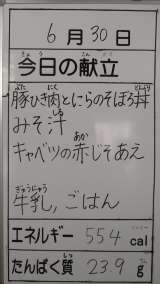 6月30日
今日の献立
豚ひき肉とにらのそぼろ丼
みそ汁
キャベツの赤じそあえ
牛乳,ごはん
エネルギー 554 cal
たんぱく質 23.9 g